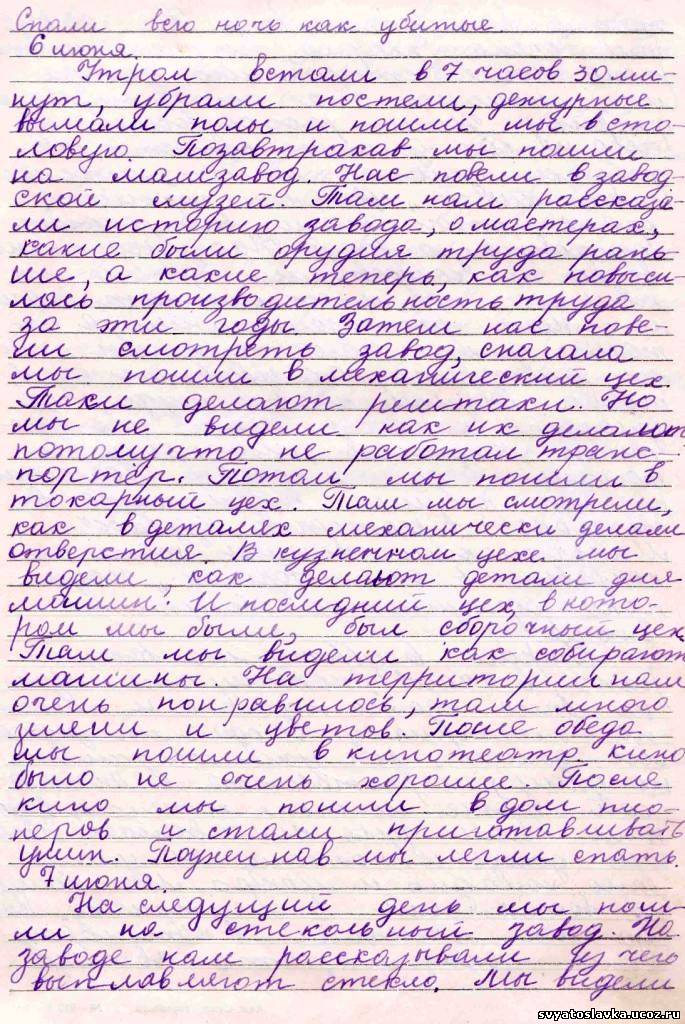 Спали всю ночь как убитые.
6 июня.
Утром встали в 7 часов 30 ми-
нут, убрали постели, дежурные
вымыли полы и пошли мы в сто-
ловую. Позавтракав мы пошли
на машзавод. Нас повели в завод-
ской музей. Там нам рассказа-
ли историю завода, о мастерах,
какие были орудия труда рань-
ше, а какие теперь, как повыси-
лась производительность труда
за эти годы. Затем нас пове-
ли смотреть завод, сначала
мы пошли в механический цех.
Там делают рештаки. Но
мы не видели как их делают
потому что не работал транс-
портёр. Потом мы пошли в
токарный цех. Там мы смотрели,
как в деталях механически делали
отверстия. В кузнечном цехе мы
видели, как делают детали для
машин. И последний цех, в кото-
ром мы были, был сборочный цех
Там мы видели как собирают
машины. На территории нам
очень понравилось, там много
зелени и цветов. После обеда
мы пошли в кинотеатр, кино
было не очень хорошее. После
кино мы пошли в дом пио-
неров и стали приготавливать
ужин. Поужинав мы легли спать.
7 июня.
На следущий день мы пош-
ли на стекольный завод. На
заводе нам рассказывали из чего
выплавляют стекло. Мы видели
svyatoslavka.ucoz.ru